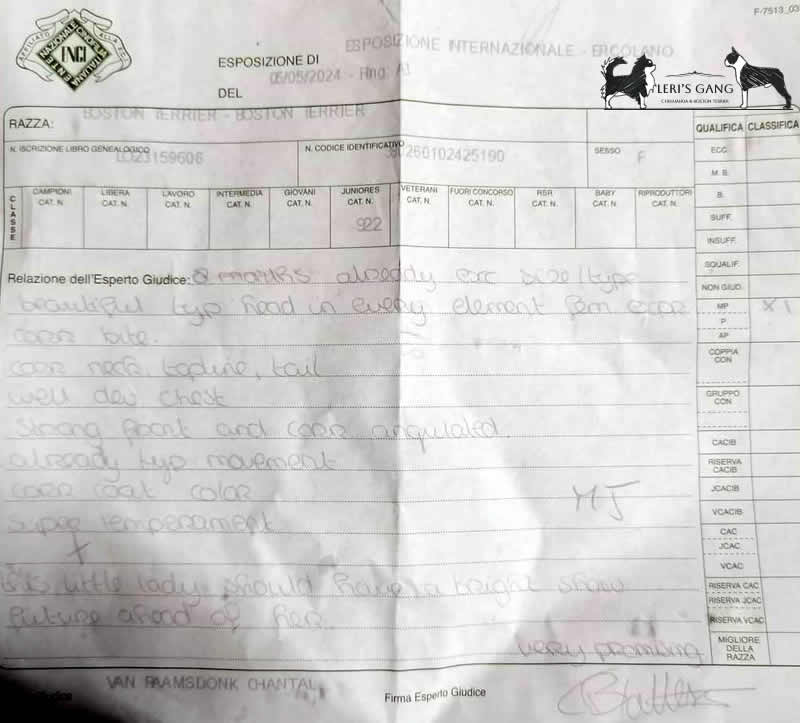 F-7513_03
AFFILIATO ALLA FCI
ENTE NAZIONALE CINOFILIA ITALIANA
ENCI
ESPOSIZIONE DI ESPOSIZIONE INTERNAZIONALE - ERCOLANO
DEL 05/05/2024 - Ring. A1
LERI'S GANG
CHIHUAHUA & BOSTON TERRIER
RAZZA: BOSTON TERRIER - BOSTON TERRIER
N. ISCRIZIONE LIBRO GENEALOGICO LO23159606
N. CODICE IDENTIFICATIVO 380260102425190
SESSO F
CLASSE
CAMPIONI CAT. N.
LIBERA CAT. N.
LAVORO CAT. N.
INTERMEDIA CAT. N.
GIOVANI CAT. N.
JUNIORES CAT. N. 922
VETERANI CAT. N.
FUORI CONCORSO CAT. N.
RSR CAT. N.
BABY CAT. N.
RIPRODUTTORI CAT. N.
QUALIFICA CLASSIFICA
ECC.
M. B.
B.
SUFF.
INSUFF.
SQUALIF.
NON GIUD.
MP X 1
P
AP
COPPIA CON
GRUPPO CON
CACIB
RISERVA CACIB
JCACIB
VCACIB
CAC
JCAC
VCAC
RISERVA CAC
RISERVA JCAC
RISERVA VCAC
MIGLIORE DELLA RAZZA
Relazione dell'Esperto Giudice: 8 months already exc size/type
beautiful typ head in every element fem expr
corr bite.
corr neck, topline, tail
well dev chest
Strong front and corr angulated.
already typ movement
corr coat color
super temperament
MJ
+
this little lady should have a bright show
future ahead of her.
very promising
VAN RAAMSDONK CHANTAL
Giudice
Firma Esperto Giudice